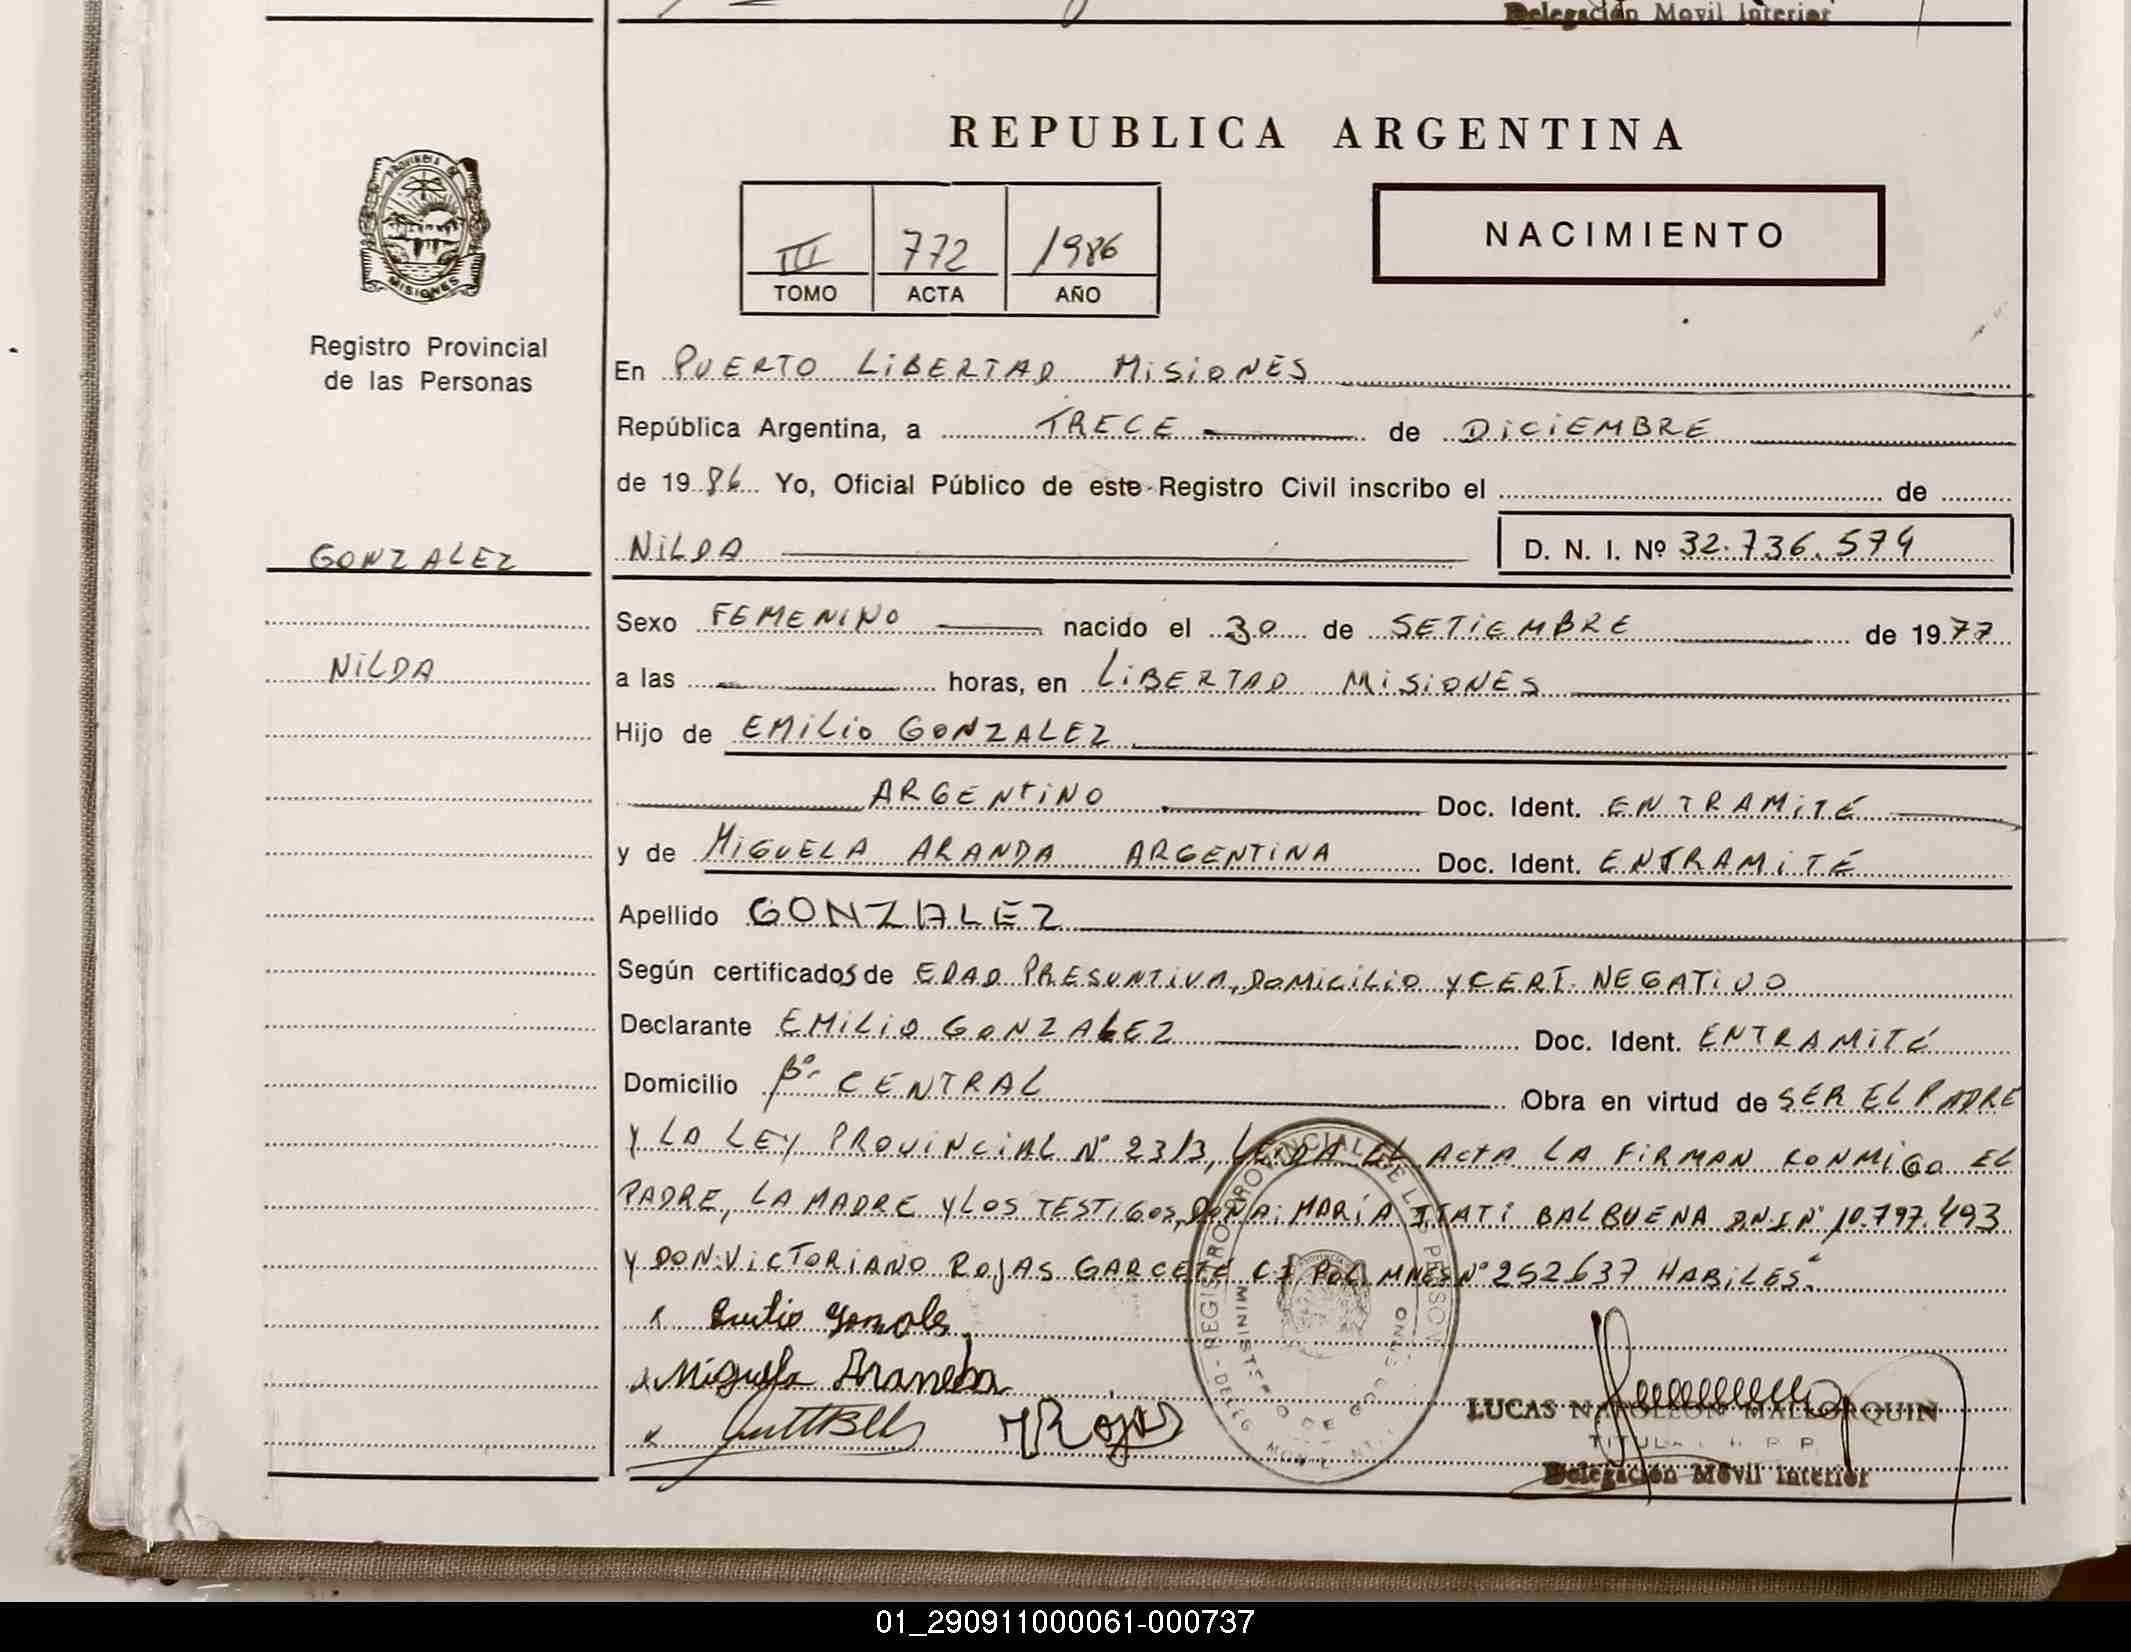 Delegación Movil Interior
REPUBLICA ARGENTINA
PROVINCIA DE
MISIONES
III 772 1986
TOMO ACTA AÑO
NACIMIENTO
Registro Provincial
de las Personas
En PUERTO LIBERTAD MISIONES
República Argentina, a TRECE de DICIEMBRE
de 1986 Yo, Oficial Público de este Registro Civil inscribo el de
GONZALEZ
NILDA D. N. I. Nº 32.736.574
Sexo FEMENINO nacido el 30 de SETIEMBRE de 1977
NILDA
a las horas, en LIBERTAD MISIONES
Hijo de EMILIO GONZALEZ
ARGENTINO Doc. Ident. ENTRAMITE
y de MIGUELA ARANDA ARGENTINA Doc. Ident. ENTRAMITE
Apellido GONZALEZ
Según certificados de EDAD PRESUNTIVA, DOMICILIO Y CERT. NEGATIVO
Declarante EMILIO GONZALEZ Doc. Ident. ENTRAMITE
Domicilio Bº CENTRAL Obra en virtud de SER EL PADRE
Y LA LEY PROVINCIAL Nº 2313, LEIDA EL ACTA LA FIRMAN CONMIGO EL
PADRE, LA MADRE Y LOS TESTIGOS, DOÑA: MARIA ITATI BALBUENA DNI Nº 10.797.493
Y DON: VICTORIANO ROJAS GARCETE CI POL MNES Nº 252637 HABILES.
Miguela Aranda
Rojas
LUCAS NAPOLEON MALLORQUIN
TITULAR R. P. P.
Delegación Movil Interior
REGISTRO PROVINCIAL DE LAS PERSONAS
MINISTERIO DE GOBIERNO
01_290911000061-000737